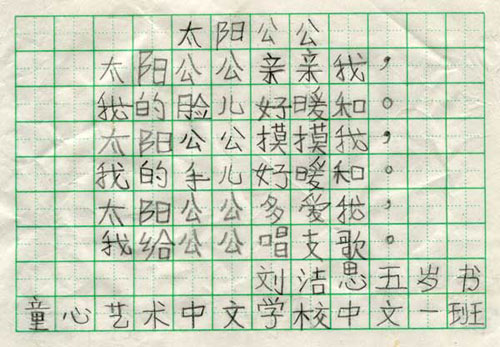 太阳公公
太阳公公亲亲我，
我的脸儿好暖和。
太阳公公摸摸我，
我的手儿好暖和。
太阳公公多爱我，
我给公公唱支歌。
刘洁思五岁书
童心艺术中文学校中文一班